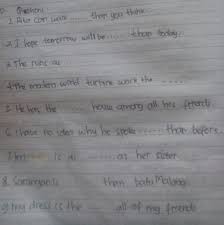 Question:
1. can walk ...... than you think
2. I hope tomorrow will be ...... than today.
3. The runs as
4. The modern world turbine work the ......
5. He has the ...... house among all his friends
6. I have no idea why he spoke ...... than before.
is as ...... as her sister
8. than batu Malang
9) my dress is the ...... all of my friends